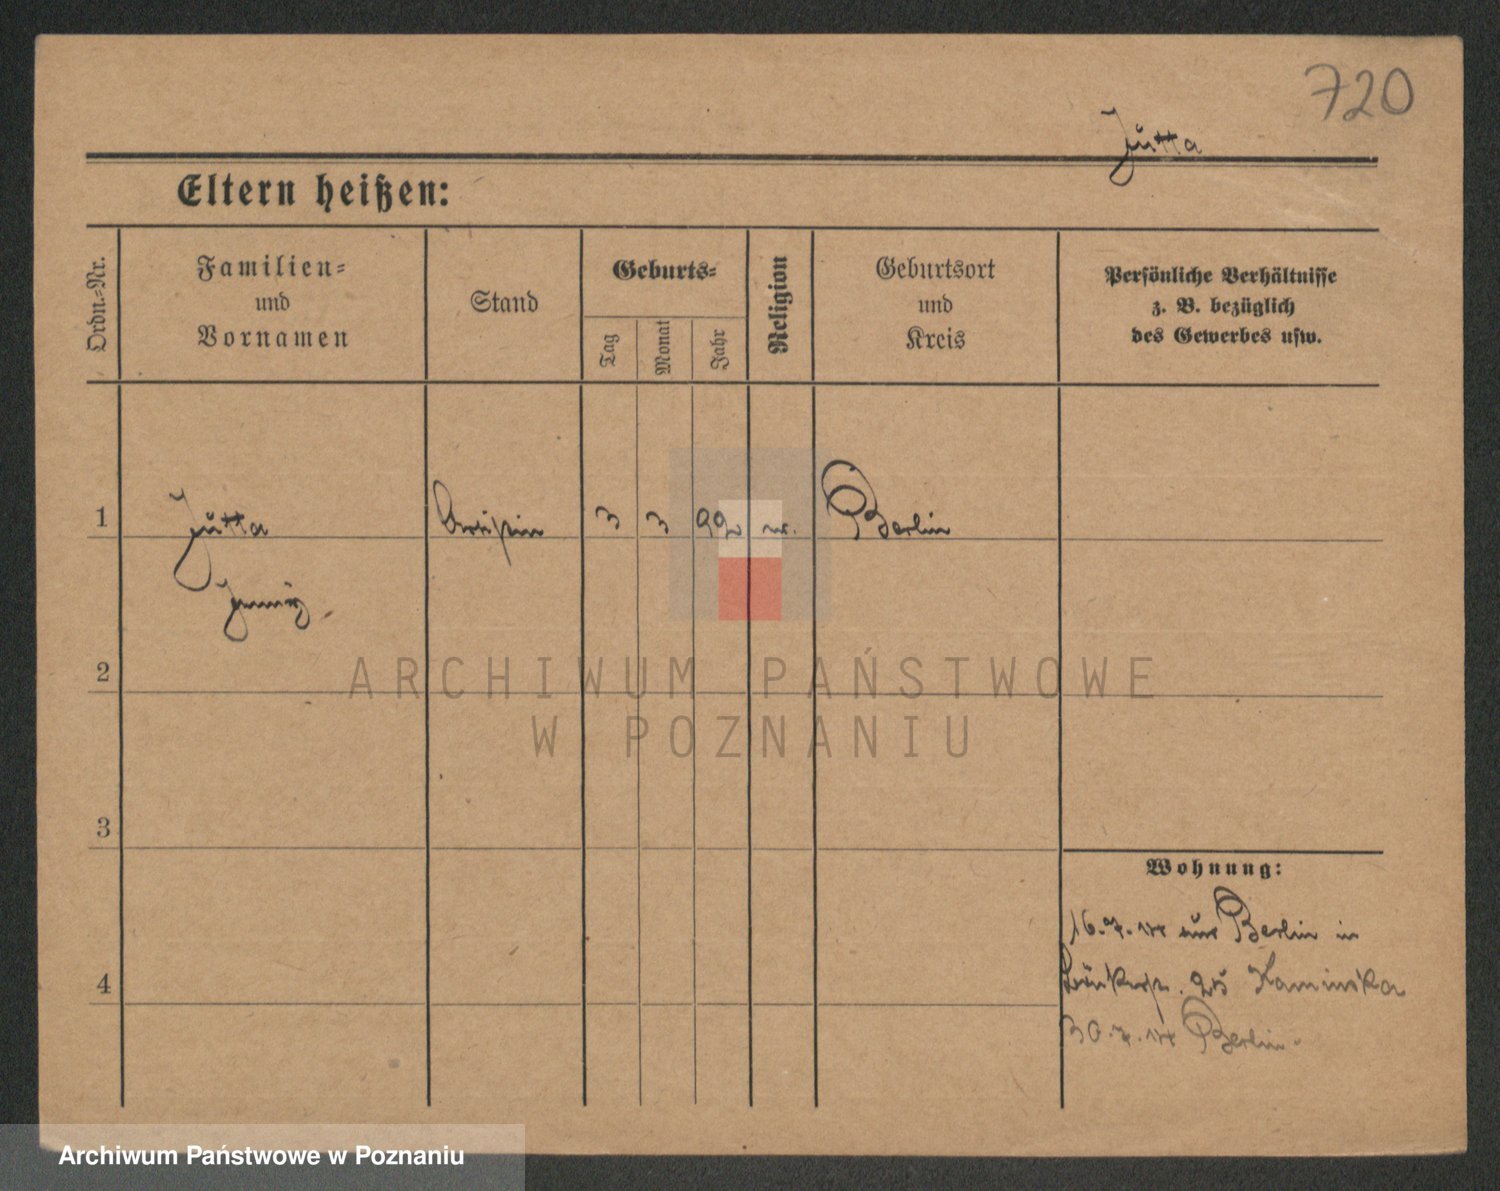 720
Jutta
Eltern heißen:
Ordn.-Nr.
Familien-
und
Vornamen
Stand
Geburts-
Tag
Monat
Jahr
Religion
Geburtsort
und
Kreis
Persönliche Verhältnisse
z. B. bezüglich
des Gewerbes usw.
1 Jutta 3 3 92 Berlin
2
ARCHIWUM PAŃSTWOWE
W POZNANIU
3
Wohnung:
16.7. Berlin in
4
Kaminska
30.7. Berlin.
Archiwum Państwowe w Poznaniu